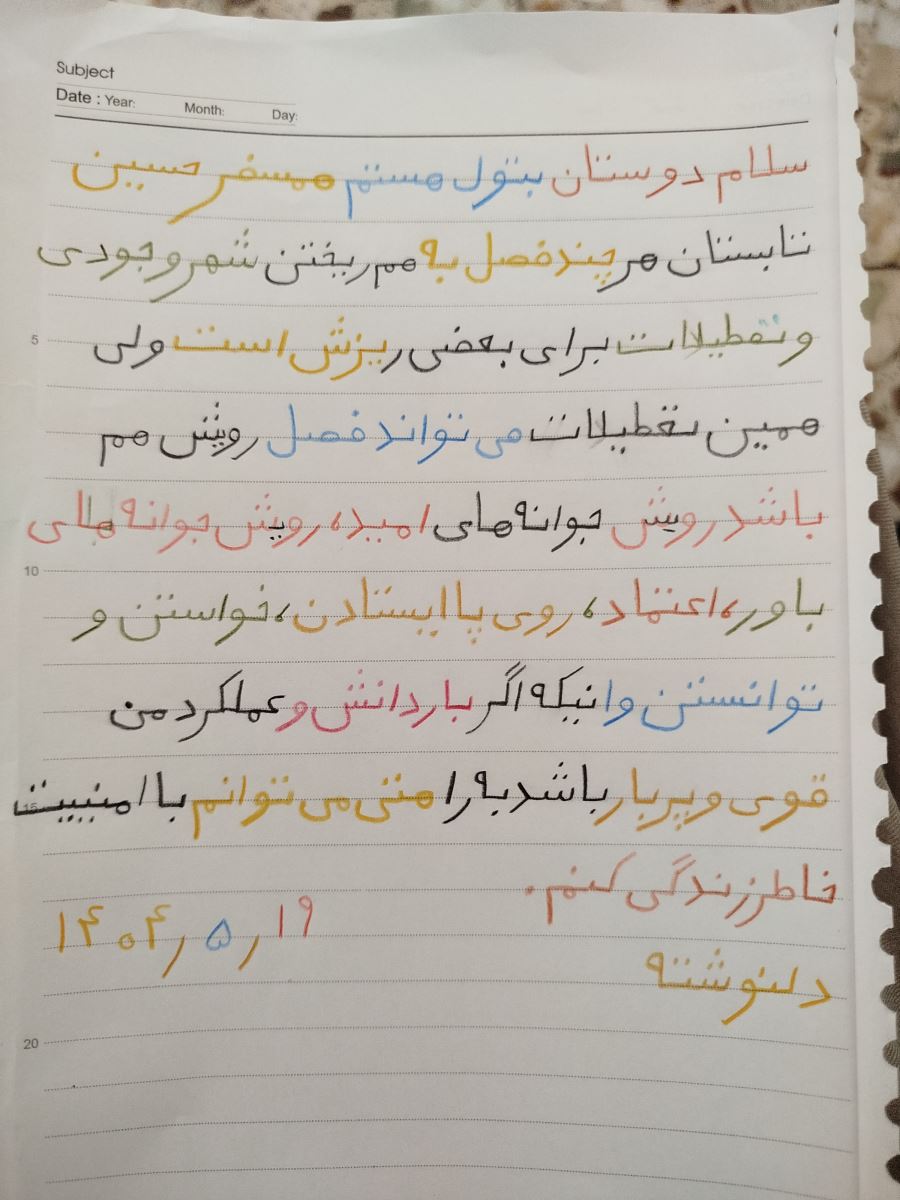 Subject
Date : Year: Month: Day:
سلام دوستان بتول هستم همسفر حسین
تابستان هر چند فصل به هم ریختن شهر وجودی
5
و تعطیلات برای بعضی ریزش است ولی
همین تعطیلات می تواند فصل رویش هم
باشد رویش جوانه های امید، رویش جوانه های
10
باور، اعتماد، روی پا ایستادن، خواستن و
توانستن و اینکه اگر بار دانش و عملکرد من
قوی و پربار باشد به راحتی می توانم با امنیت
15
خاطر زندگی کنم.
۱۹ ر ۵ ر ۱۴۰۴
دلنوشته
20